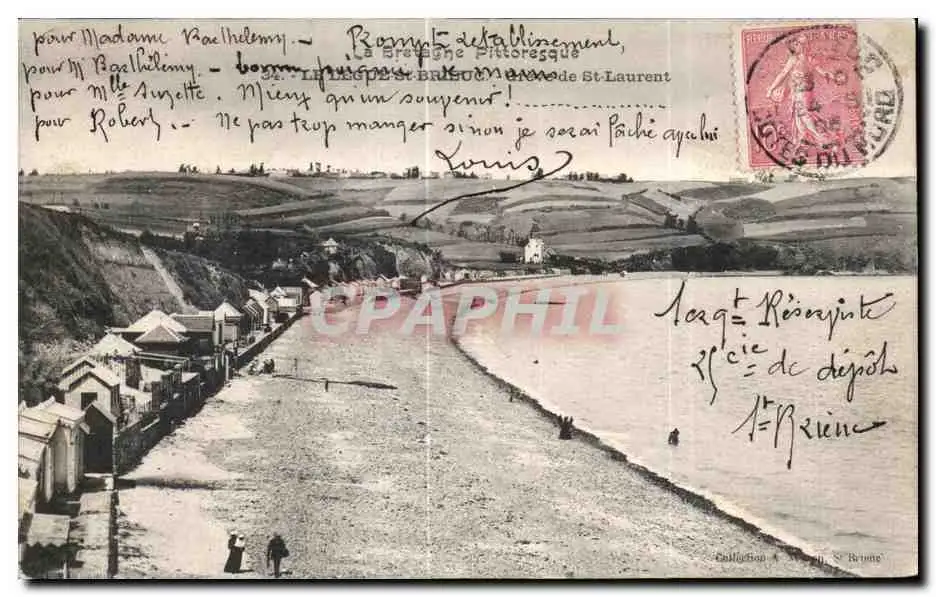 pour Madame Barthélemy. - Prompt retablissement,
La Bretagne Pittoresque
pour Mr Barthélemy. - bonne
34. LE LÉGUÉ-St-BRIEUC de St-Laurent
pour Mlle Suzette. Mieux qu'un souvenir !
pour Robert. - Ne pas trop manger sinon je serai fâché avec lui
Louis
CÔTES DU NORD
CPAPHIL
Sergt Réserviste
25 cie de dépôt
St Brieuc
Collection A St Brieuc